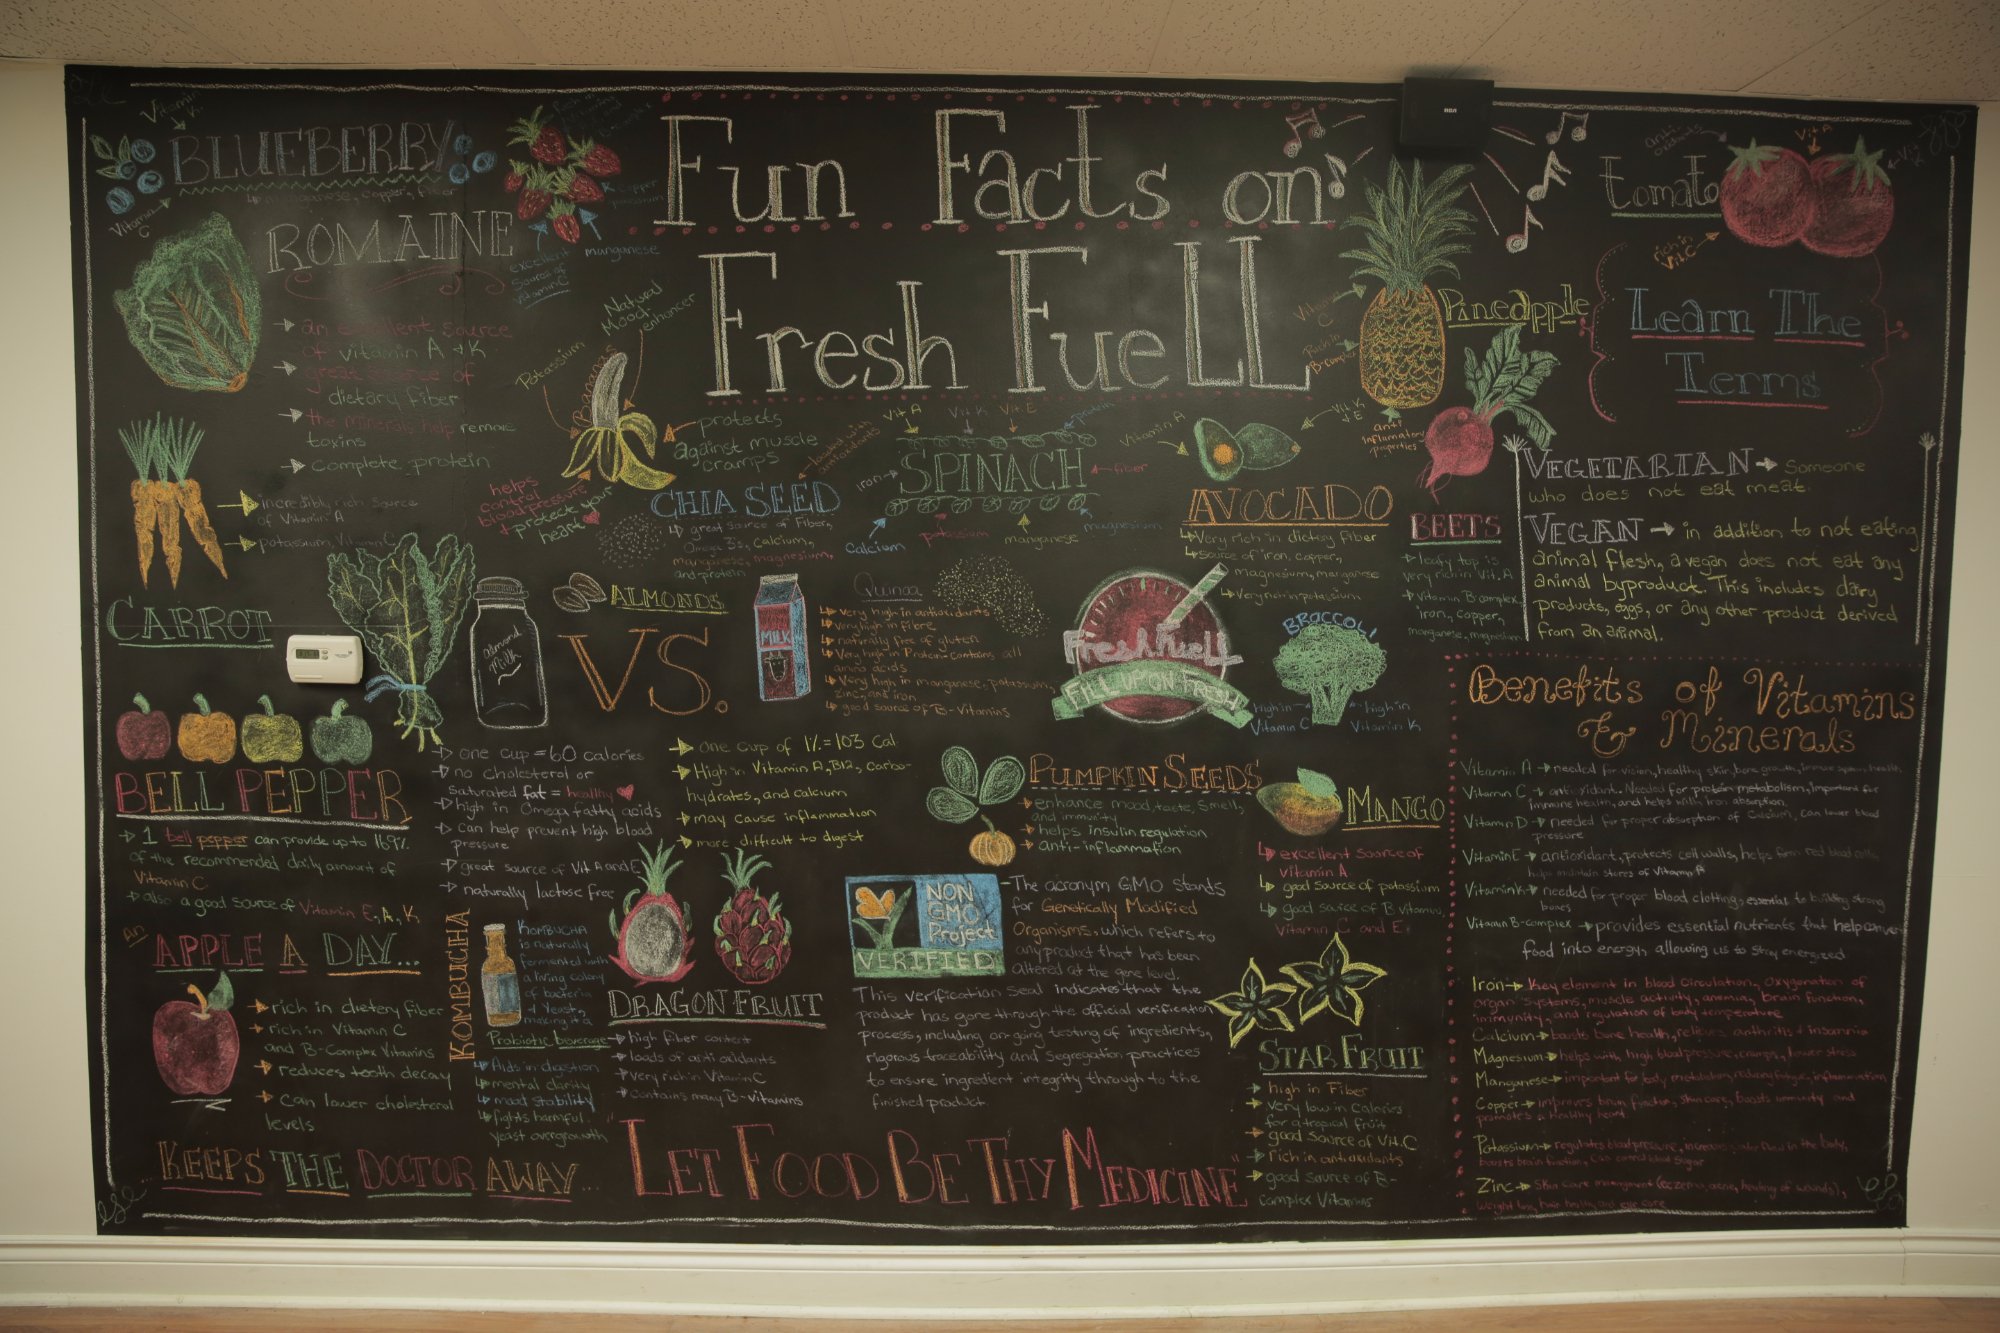 Fun Facts on
Fresh Fuell
Vitamin
K
BLUEBERRY
manganese, copper, fiber
Vitamin
C
excellent
source of
vitamin C
manganese
Copper
ROMAINE
an excellent source
of vitamin A + K
great source of
dietary fiber
the minerals help remove
toxins
complete protein
incredibly rich source
of Vitamin A
potassium, Vitamin C
CARROT
Natural
Mood
enhancer
Potassium
Bananas
protects
against muscle
cramps
helps
control
blood pressure
+ protect your
heart
CHIA SEED
loaded with
antioxidants
great source of Fiber,
Omega 3's, Calcium,
manganese, magnesium,
and protein
Vit A
Vit K
Vit E
protein
Iron
SPINACH
fiber
Calcium
potassium
manganese
magnesium
Vitamin A
Vit K
E
AVOCADO
Very rich in dietary fiber
source of iron, copper,
magnesium, manganese
Very rich in potassium
Vitamin
C
Rich in
B-complex
Pineapple
anti
inflammatory
properties
RCA
tomato
Vit A
rich in
Vit C
BEETS
leafy top is
very rich in Vit. A
Vitamin B complex
iron, copper,
manganese, magnesium
Learn The
Terms
VEGETARIAN → Someone
who does not eat meat.
VEGAN → in addition to not eating
animal flesh, a vegan does not eat any
animal byproduct. This includes dairy
products, eggs, or any other product derived
from an animal.
BELL PEPPER
1 bell pepper can provide up to 169%
of the recommended daily amount of
Vitamin C
also a good source of Vitamin E, A, K
almond
milk
ALMONDS
VS.
MILK
one cup = 60 calories
no cholesterol or
saturated fat = healthy
high in Omega fatty acids
can help prevent high blood
pressure
great source of Vit A and E
naturally lactose free
one cup of 1% = 103 Cal.
High in Vitamin A, B12, carbo-
hydrates, and calcium
may cause inflammation
more difficult to digest
Quinoa
very high in antioxidants
very high in fibre
naturally free of gluten
Very high in Protein - contains all
amino acids
Very high in manganese, potassium,
zinc, and iron
good source of B-Vitamins
Fresh Fuell
FILL UP ON FRESH
BROCCOLI
high in
Vitamin C
high in
Vitamin K
PUMPKIN SEEDS
enhance mood, taste, smell,
and immunity
helps insulin regulation
anti-inflammation
MANGO
excellent source of
vitamin A
good source of potassium
good source of B vitamin,
vitamin C and E
AN
APPLE A DAY...
rich in dietery fiber
rich in Vitamin C
and B-Complex Vitamins
reduces tooth decay
Can lower cholesterol
levels
...KEEPS THE DOCTOR AWAY...
KOMBUCHA
KOMBUCHA
is naturally
fermented with
a living colony
of bacteria
+ Yeast,
making it a
Probiotic beverage
Aids in digestion
mental clarity
mood stability
fights harmful
yeast overgrowth
DRAGON FRUIT
high fiber content
loads of anti oxidants
very rich in Vitamin C
contains many B-vitamins
NON
GMO
Project
VERIFIED
The acronym GMO stands
for Genetically Modified
Organisms, which refers to
any product that has been
altered at the gene level.
This verification seal indicates that the
product has gone through the official verification
process, including on-going testing of ingredients,
rigorous traceability and segregation practices
to ensure ingredient integrity through to the
finished product.
STAR FRUIT
high in Fiber
very low in Calories
for a tropical fruit
good source of Vit. C
rich in antioxidants
good source of B-
complex Vitamins
"LET FOOD BE THY MEDICINE"
Benefits of Vitamins
& Minerals
Vitamin A → needed for vision, healthy skin, bone growth, immune system, health
Vitamin C → antioxidant. Needed for protein metabolism, important for
immune health, and helps with iron absorption.
Vitamin D → needed for proper absorption of Calcium, can lower blood
pressure
Vitamin E → antioxidant, protects cell walls, helps form red blood cells,
helps maintain stores of Vitamin A
Vitamin K → needed for proper blood clotting, essential to building strong
bones
Vitamin B-complex → provides essential nutrients that help convert
food into energy, allowing us to stay energized
Iron → Key element in blood circulation, oxygenation of
organ systems, muscle activity, anemia, brain function,
immunity, and regulation of body temperature
Calcium → boosts bone health, relieves arthritis + insomnia
Magnesium → helps with high blood pressure, cramps, lower stress
Manganese → important for body metabolism, reducing fatigue, inflammation
Copper → improves brain function, skin care, boosts immunity and
promotes a healthy heart
Potassium → regulates blood pressure, increases water flow in the body,
boosts brain function, can control blood sugar
Zinc → Skin care management (eczema, acne, healing of wounds),
weight loss, hair health, and eye care